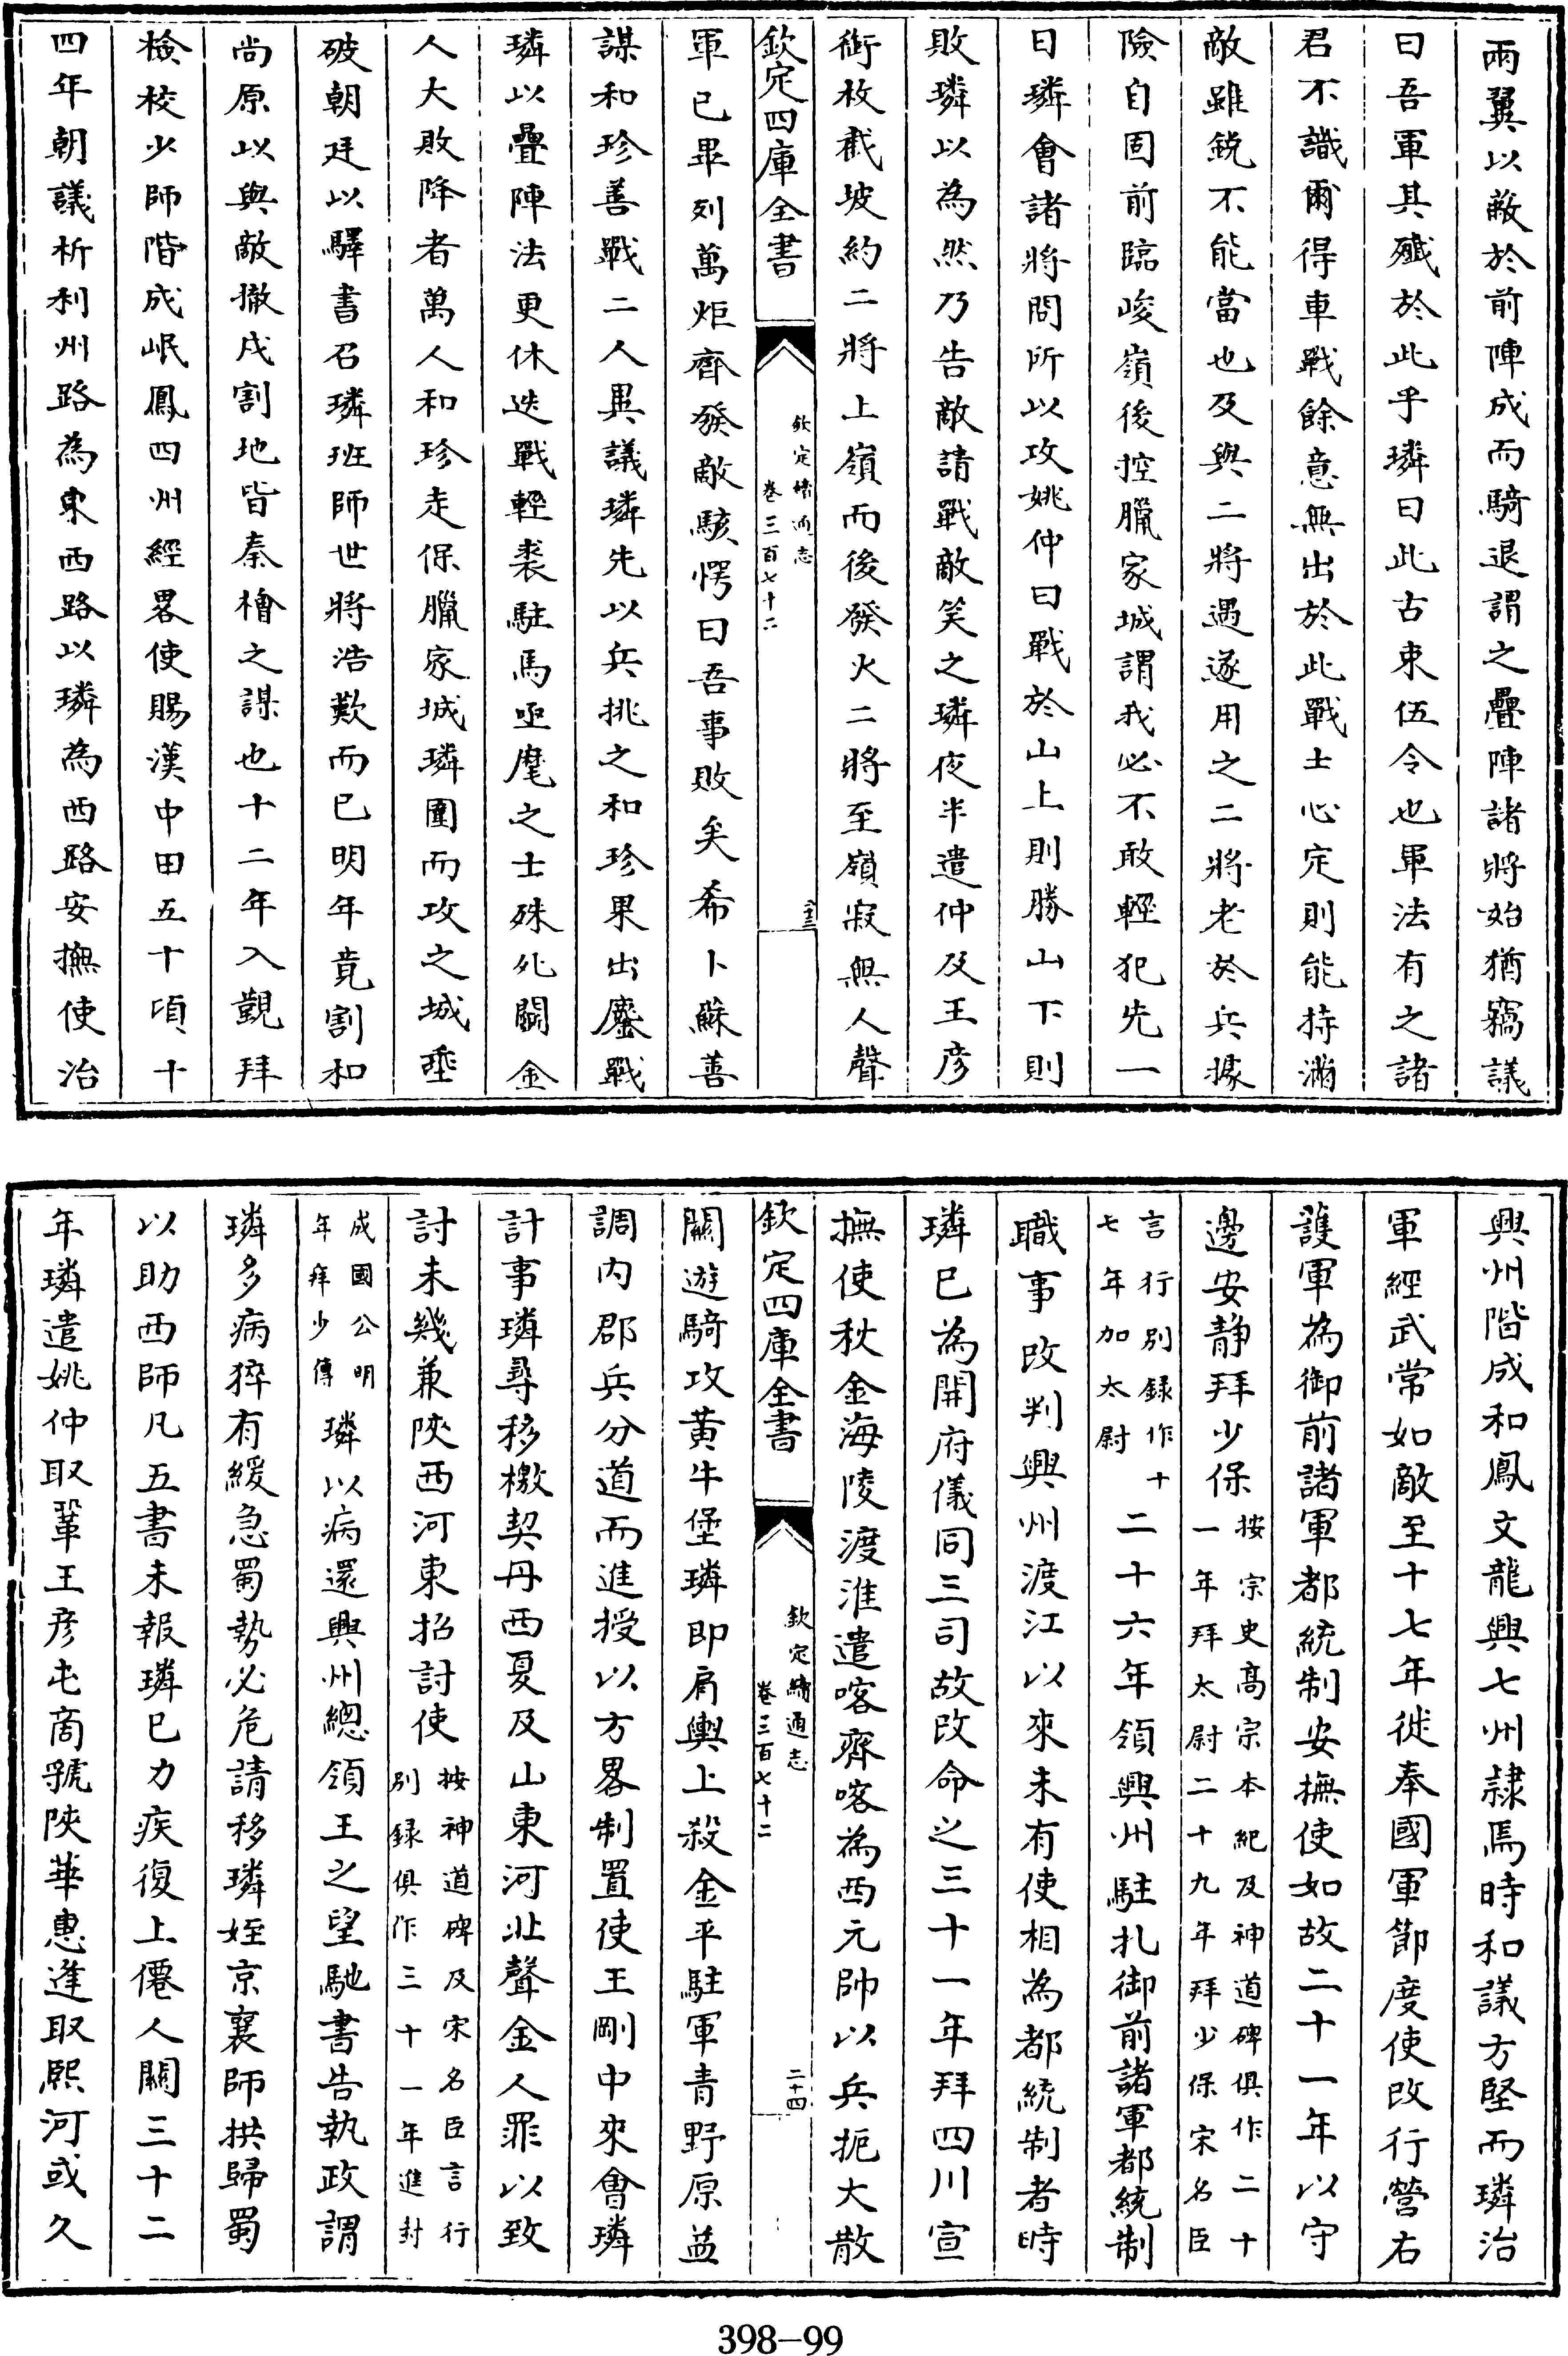 兩翼以蔽於前陣成而騎退謂之疊陣諸將始猶竊議
曰吾軍其殲於此乎璘曰此古束伍令也軍法有之諸
君不識爾得車戰餘意無出於此戰士心定則能持滿
敵雖銳不能當也及與二將遇遂用之二將老於兵據
險自固前臨峻嶺後控臘家城謂我必不敢輕犯先一
日璘會諸將問所以攻姚仲曰戰於山上則勝山下則
敗璘以為然乃告敵請戰敵笑之璘夜半遣仲及王彥
銜枚截坡約二將上嶺而後發火二將至嶺寂無人聲
欽定四庫全書
欽定續通志
卷三百七十二
二十三
軍已畢列萬炬齊發敵駭愕曰吾事敗矣希卜蘇善
謀和珍善戰二人異議璘先以兵挑之和珍果出鏖戰
璘以疊陣法更休迭戰輕裘駐馬亟麾之士殊死鬬金
人大敗降者萬人和珍走保臘家城璘圍而攻之城垂
破朝廷以驛書召璘班師世將浩歎而已明年竟割和
尚原以與敵撤戍割地皆秦檜之謀也十二年入覲拜
檢校少師階成岷鳳四州經畧使賜漢中田五十頃十
四年朝議析利州路為東西路以璘為西路安撫使治
興州階成和鳳文龍興七州隷焉時和議方堅而璘治
軍經武常如敵至十七年徙奉國軍節度使改行營右
護軍為御前諸軍都統制安撫使如故二十一年以守
邊安靜拜少保按宗史高宗本紀及神道碑俱作二十
一年拜太尉二十九年拜少保宋名臣
言行別録作十
七年加太尉二十六年領興州駐扎御前諸軍都統制
職事改判興州渡江以來未有使相為都統制者時
璘已為開府儀同三司故改命之三十一年拜四川宣
撫使秋金海陵渡淮遣喀齊喀為西元帥以兵扼大散
欽定四庫全書
欽定續通志
卷三百七十二
二十四
關遊騎攻黃牛堡璘即肩輿上殺金平駐軍青野原益
調内郡兵分道而進授以方畧制置使王剛中來會璘
計事璘尋移檄契丹西夏及山東河北聲金人罪以致
討未幾兼陜西河東招討使按神道碑及宋名臣言行
别録俱作三十一年進封
成國公明
年拜少傅璘以病還興州總領王之望馳書告執政謂
璘多病猝有緩急蜀勢必危請移璘姪京襄帥拱歸蜀
以助西師凡五書未報璘已力疾復上僊人關三十二
年璘遣姚仲取鞏王彥屯商虢陜華惠逢取熙河或久
398-99